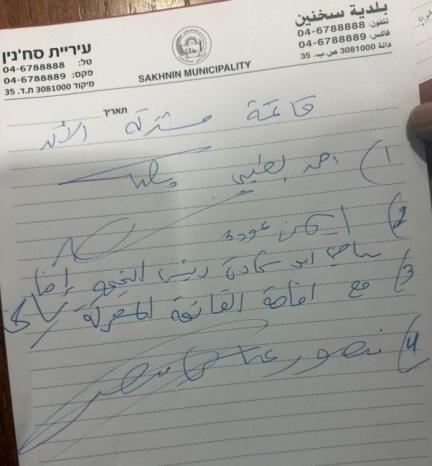 بلدية سخنين
تلفون: 04-6788888
فاكس: 04-6788889
3081000 ص.ب. 35
SAKHNIN MUNICIPALITY
עיריית סח'נין
טל: 04-6788888
פקס: 04-6788889
מיקוד 3081000 ת.ד. 35
תאריך
قائمة مشتركة الآن
1) احمد طيبي
2) ايمن عودة
3) سامي ابو شحادة رئيس التجمع
مع اقامة القائمة المشتركة
4) منصور عباس